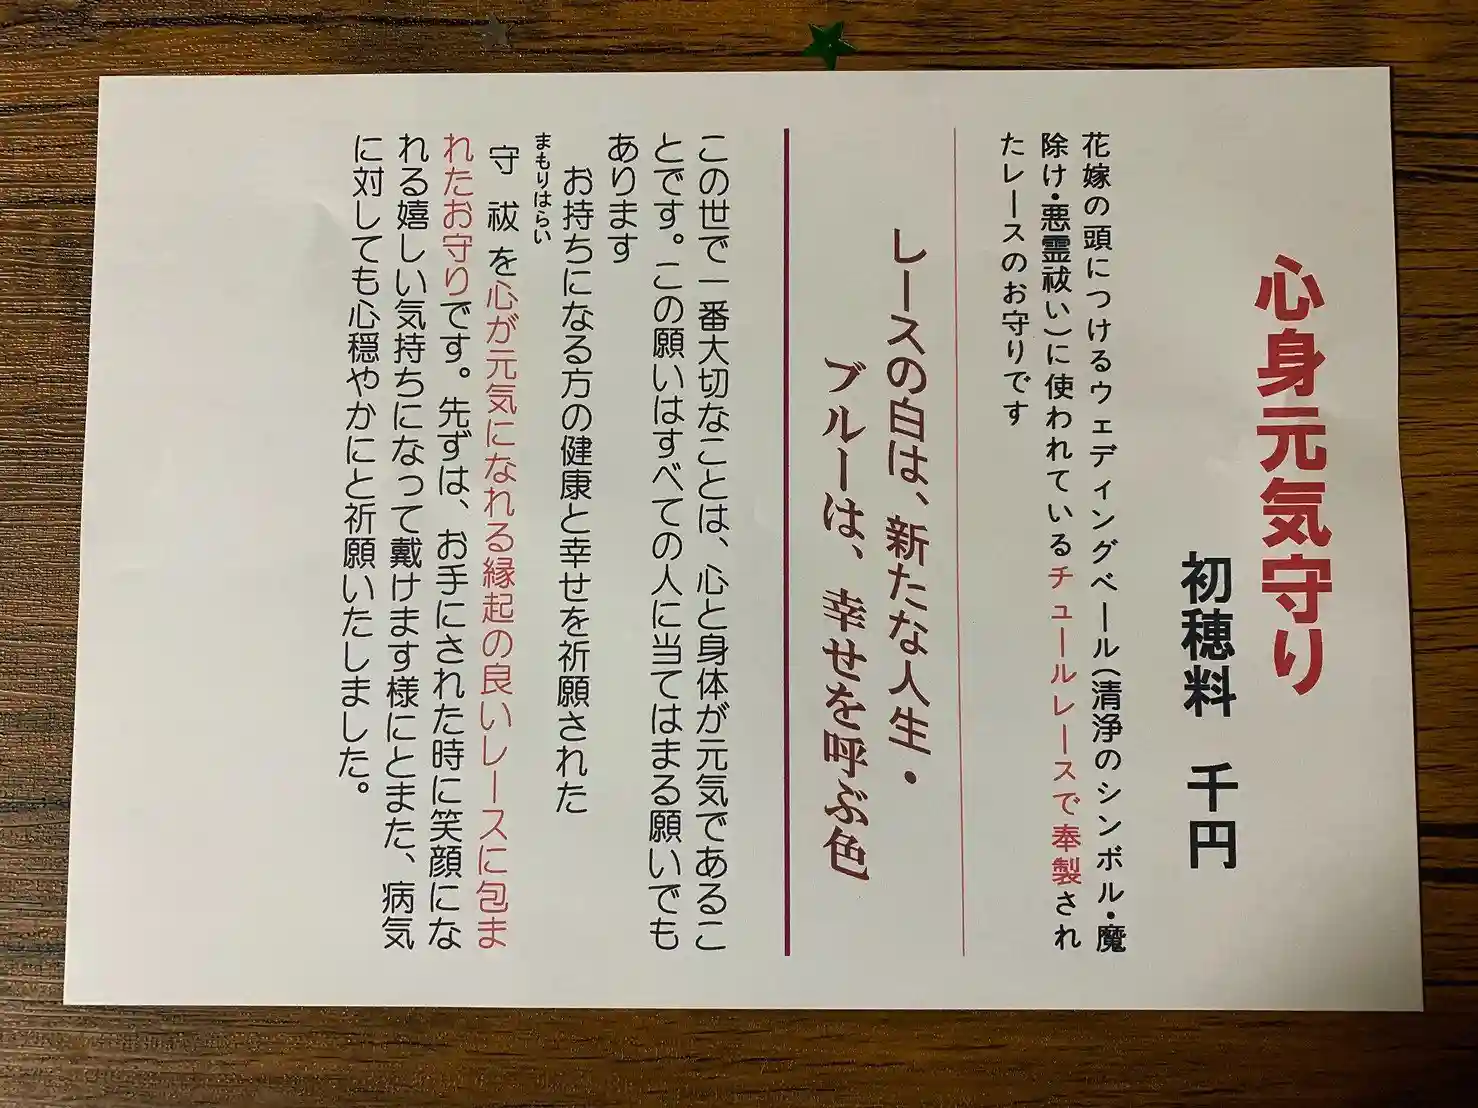 心身元気守り
初穂料　千円
花嫁の頭につけるウェディングベール(清浄のシンボル・魔
除け・悪霊祓い)に使われているチュールレースで奉製され
たレースのお守りです
レースの白は、新たな人生・
ブルーは、幸せを呼ぶ色
この世で一番大切なことは、心と身体が元気であるこ
とです。この願いはすべての人に当てはまる願いでも
あります
お持ちになる方の健康と幸せを祈願された
まもりはらい
守祓を心が元気になれる縁起の良いレースに包ま
れたお守りです。先ずは、お手にされた時に笑顔にな
れる嬉しい気持ちになって戴けます様にとまた、病気
に対しても心穏やかにと祈願いたしました。